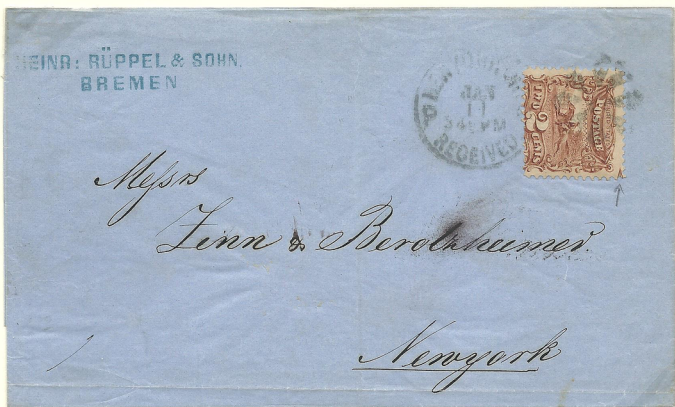 HEINR: RÜPPEL & SOHN.
BREMEN
NEW YORK
JAN
11
PM
RECEIVED
U.S. POSTAGE
TWO 2 CENTS
Messrs
Zinn & Berolzheimer
Newyork